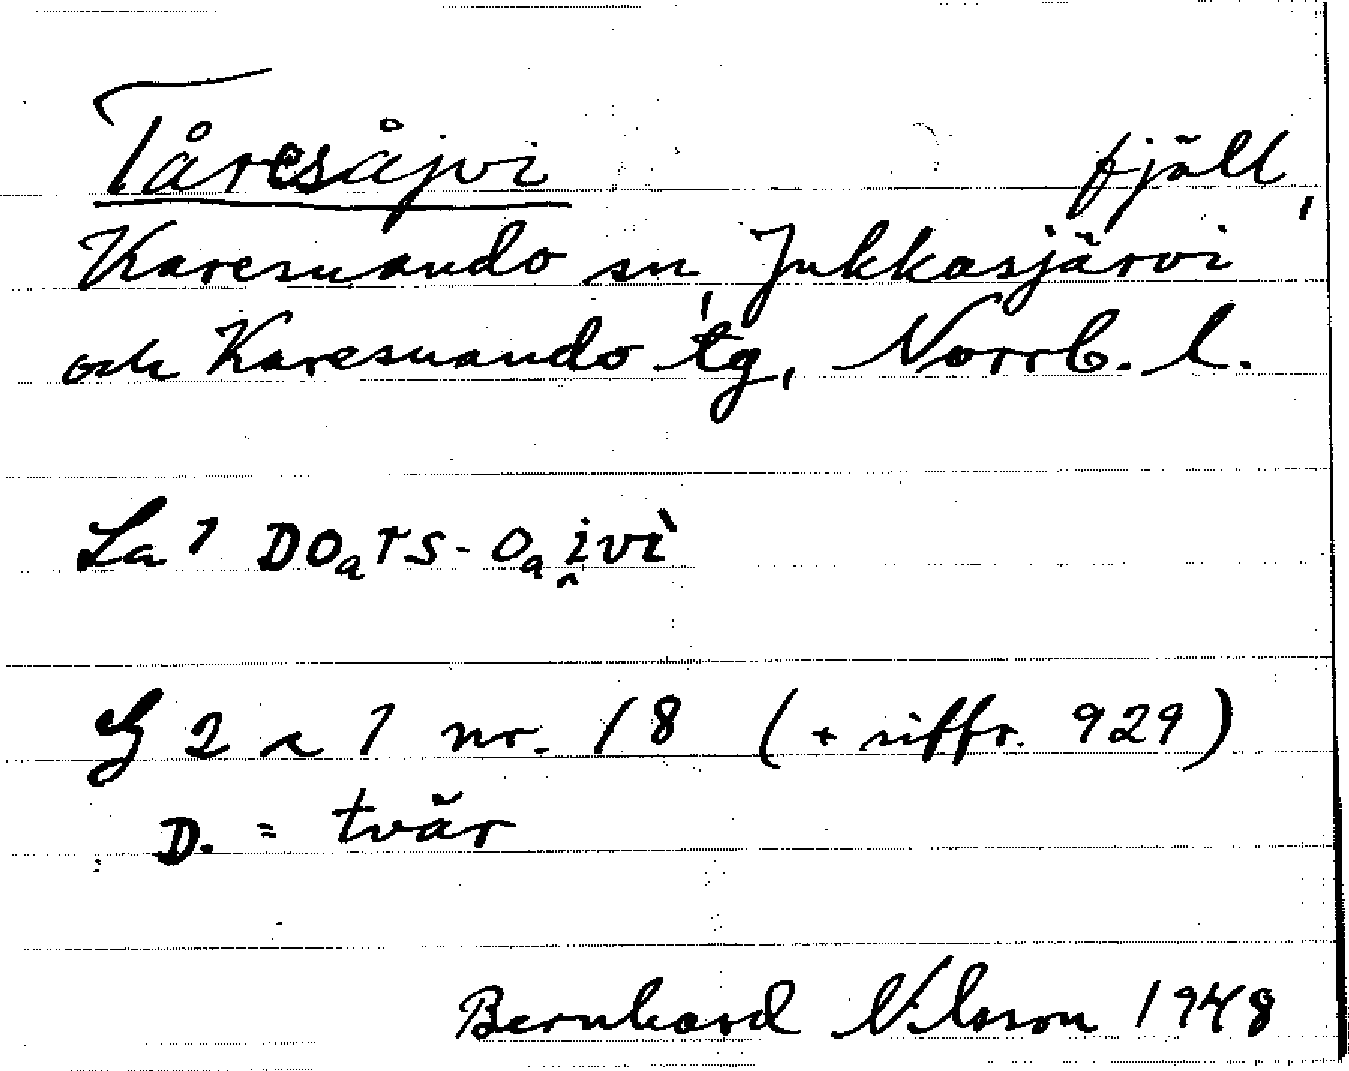 Tåresåjvi fjäll,
Karesuando sn, Jukkasjärvi
och Karesuando tg, Norrb. l.
La 1 DOₐrS-Oₐi̯vì
G 2 a 1 nr. 18 (+ siffr. 929)
D. = tvär
Bernhard Nilsson 1948